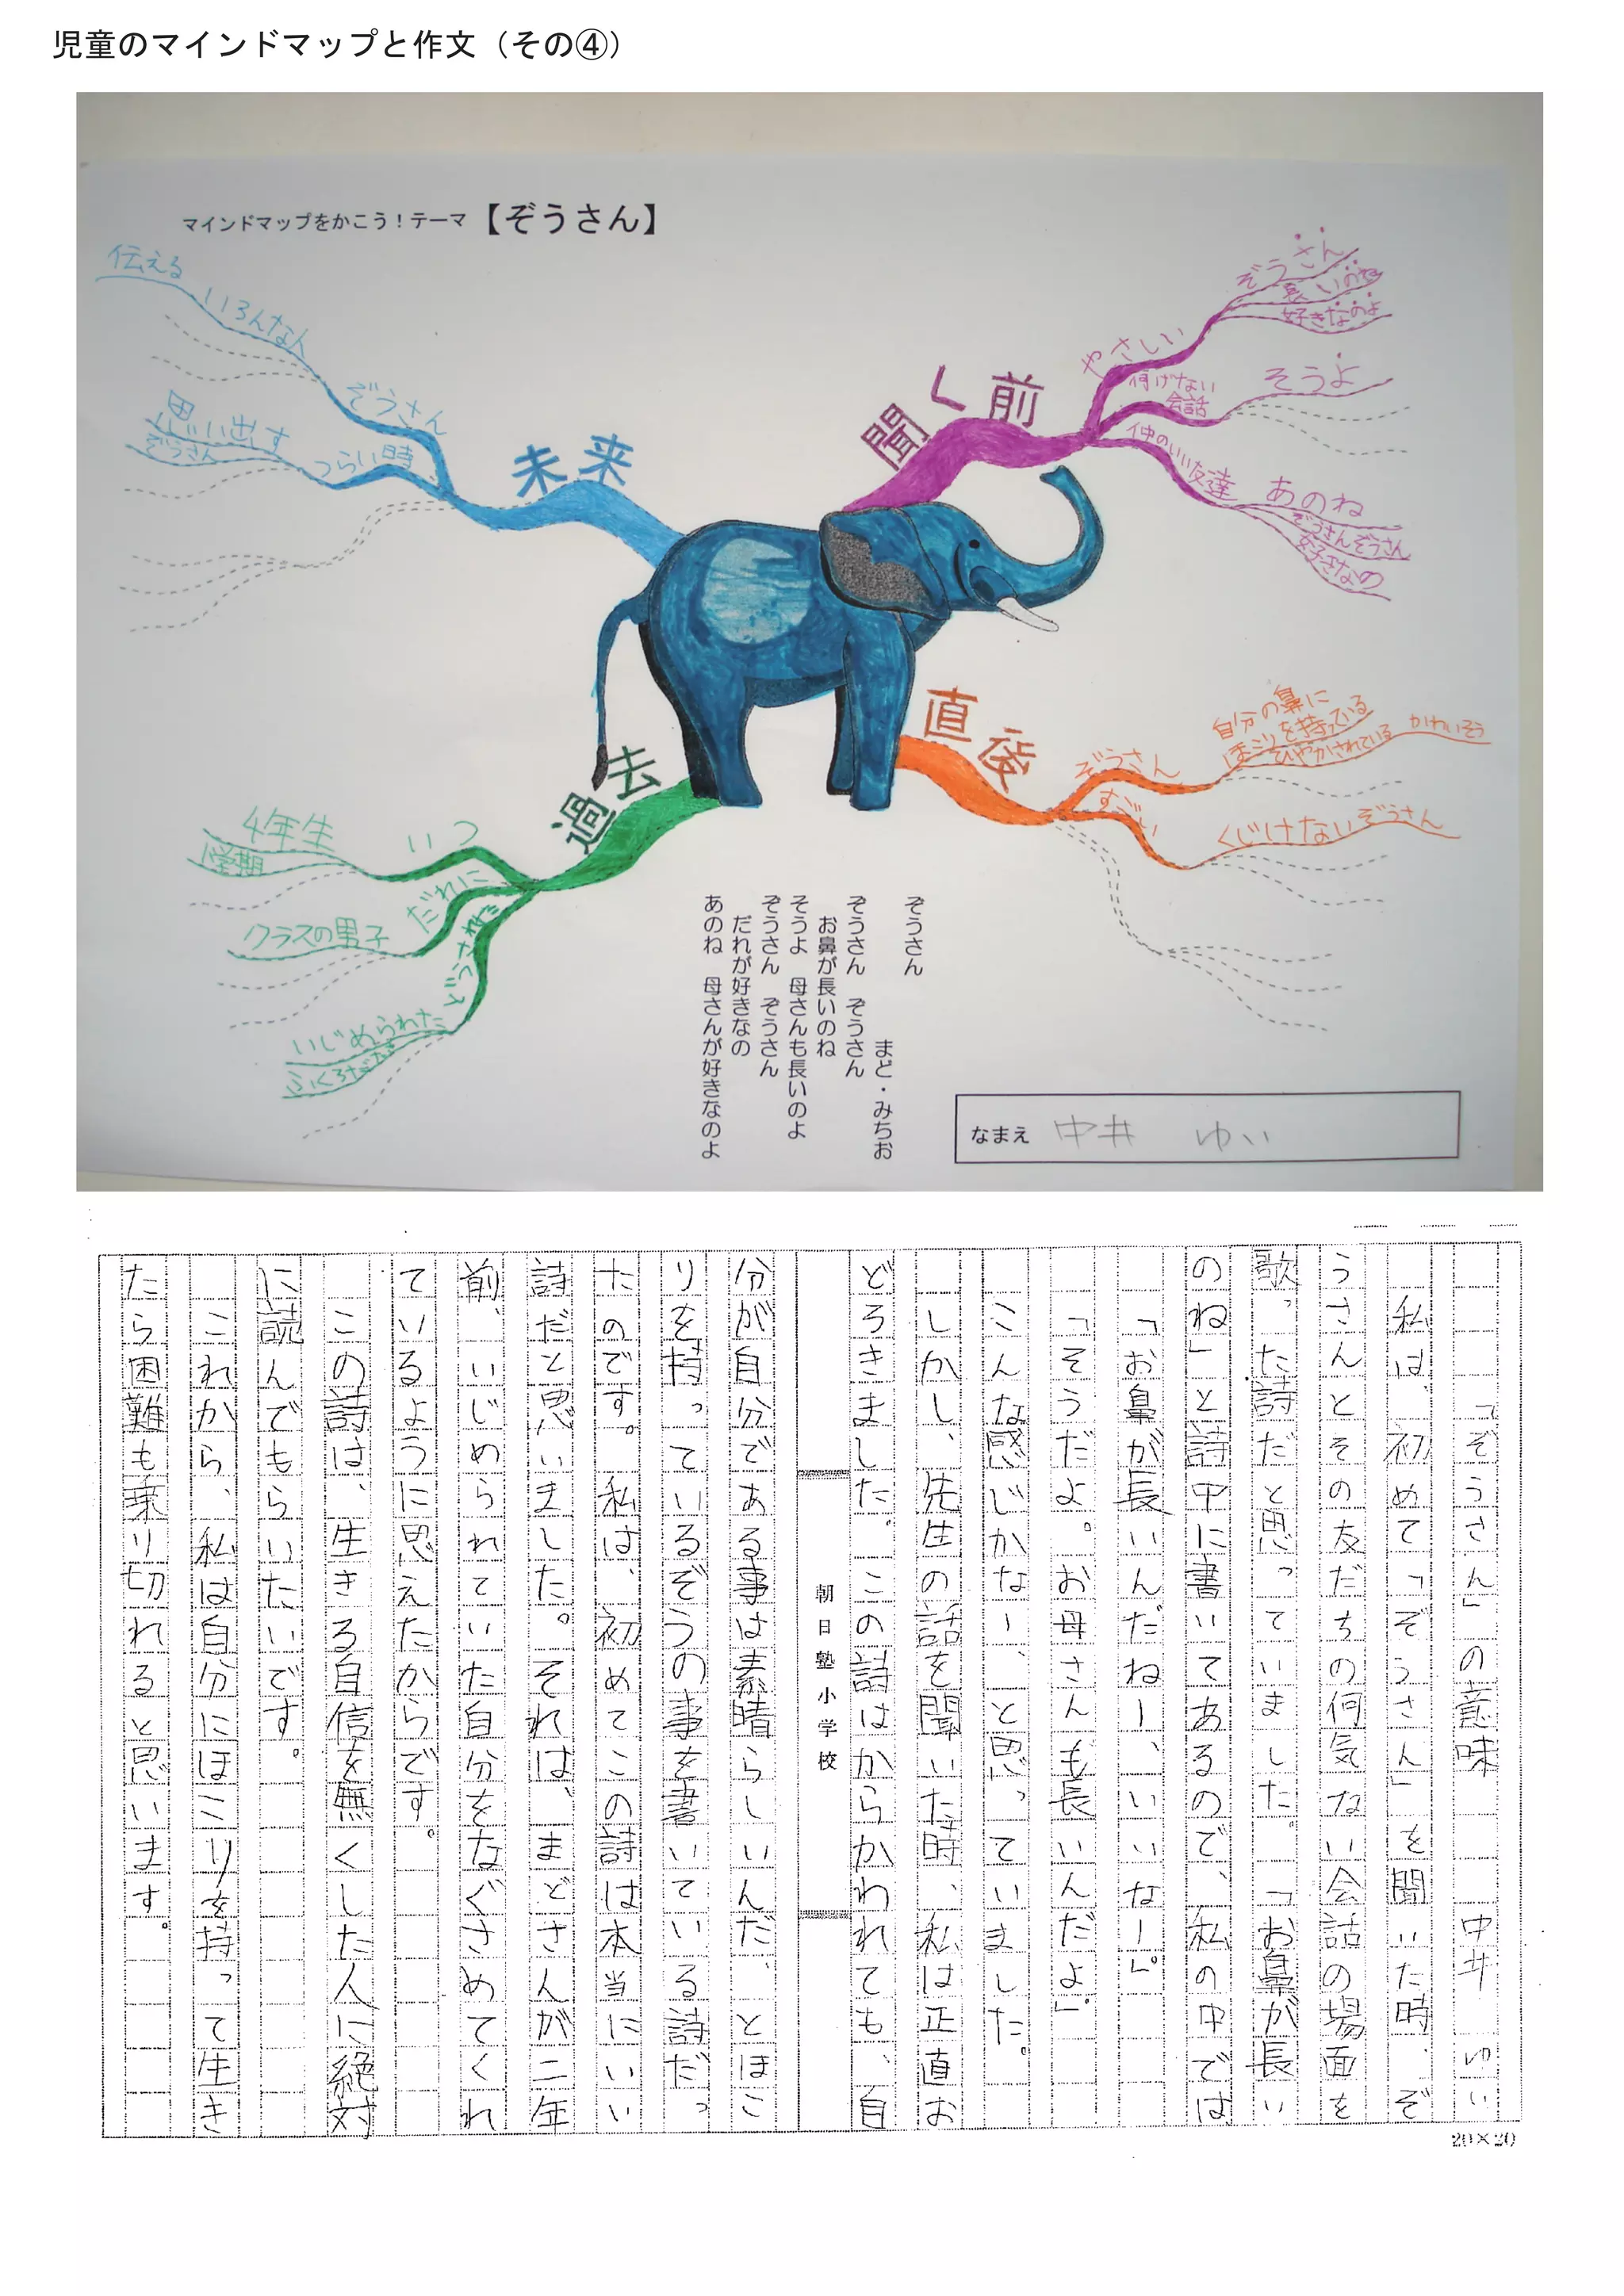 児童のマインドマップと作文（その④）
マインドマップをかこう！テーマ【ぞうさん】
未来
ぞうさん
いろんな人
伝える
つらい時
思い出す
ぞうさん
聞く前
やさしい
ぞうさん
長いのね
好きなのよ
何げない
会話
そうよ
仲のいい友達
あのね
ぞうさんぞうさん
好きなの
直後
ぞうさん
自分の鼻に
ほこりを持っている
ひやかされている
かわいそう
すごい
くじけないぞうさん
過去
いつ
4年生
1学期
だれに
クラスの男子
いじめられた
ふくろだたき
ぞうさん
まど・みちお
ぞうさん　ぞうさん
お鼻が長いのね
そうよ　母さんも長いのよ
ぞうさん　ぞうさん
だれが好きなの
あのね　母さんが好きなのよ
なまえ　中井　ゆい
「ぞうさん」の意味　中井　ゆい
私は、初めて「ぞうさん」を聞いた時、ぞ
うさんとその友だちの何気ない会話の場面を
歌った詩だと思っていました。「お鼻が長い
のね」と詩中に書いてあるので、私の中では
「お鼻が長いんだねー、いいなー。」
「そうだよ。お母さんも長いんだよ。」
こんな感じかなー、と思っていました。
しかし、先生の話を聞いた時、私は正直お
どろきました。この詩はからかわれても、自
朝日塾小学校
分が自分である事は素晴らしいんだ、とほこ
りを持っているぞうの事を書いている詩だっ
たのです。私は、初めてこの詩は本当にいい
詩だと思いました。それは、まどさんが二年
前、いじめられていた自分をなぐさめてくれ
ているように思えたからです。
この詩は、生きる自信を無くした人に絶対
に読んでもらいたいです。
これから、私は自分にほこりを持って生き
たら困難も乗り切れると思います。
20×20